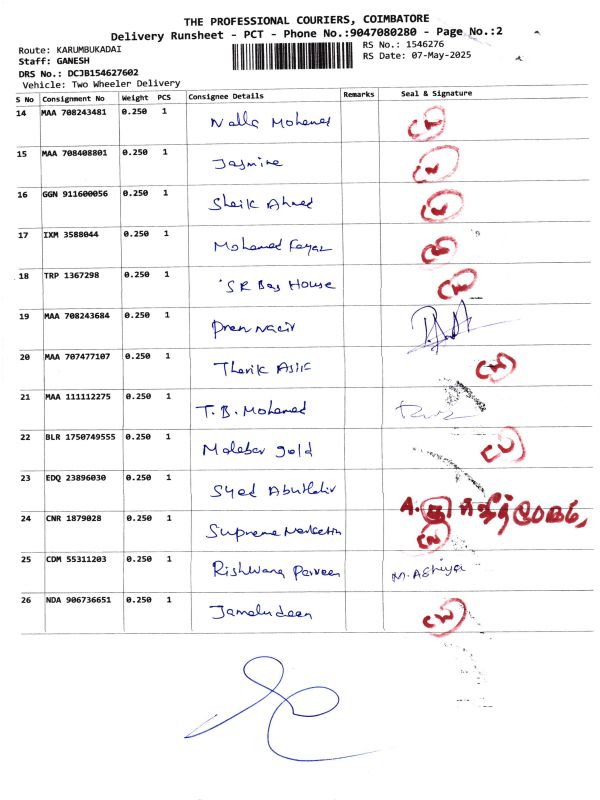 THE PROFESSIONAL COURIERS, COIMBATORE
Delivery Runsheet - PCT - Phone No.:9047080280 - Page No.:2
Route: KARUMBUKADAI RS No.: 1546276
Staff: GANESH RS Date: 07-May-2025
DRS No.: DCJB154627602
Vehicle: Two Wheeler Delivery
S No Consignment No Weight PCS Consignee Details Remarks Seal & Signature
14 MAA 708243481 0.250 1 Nalla Mohamed CN
15 MAA 708408801 0.250 1 Jasmine CN
16 GGN 911600056 0.250 1 Sheik Ahmed CN
17 IXM 3588044 0.250 1 Mohamed Fayaz
18 TRP 1367298 0.250 1 S R Bag House CN
19 MAA 708243684 0.250 1 Prem nacir
20 MAA 707477107 0.250 1 Tharik Asif CN
21 MAA 111112275 0.250 1 T. B. Mohamed
22 BLR 1750749555 0.250 1 Malabar gold
23 EDQ 23896030 0.250 1 Syed Abuthahir
24 CNR 1879028 0.250 1 Supreme Marketin CN
25 CDM 55311203 0.250 1 Rishwana Parveen M. Ashiya
26 NDA 906736651 0.250 1 Jamaludeen CN